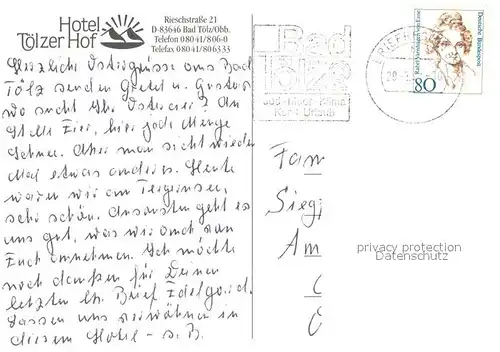 Hotel
Tölzer Hof
Rieschstraße 21
D-83646 Bad Tölz/Obb.
Telefon 08041/806-0
Telefax 08041/806333
Bad
Tölz
Jod-Moor-Klima
Kur + Urlaub
BRIEFZ
Deutsche Bundespost
Rahel Varnhagen von Ense
80
Herzliche Ostergrüsse aus Bad
Tölz senden Gretel u. Gustav
wo sucht Ihr Ostereier? An
Stelle Eier, hier jede Menge
Schnee. Aber man sieht wieder
Mal etwas anderes. Heute
waren wir am Tegernsee,
sehr schön. Ansonsten geht es
uns gut, was wir auch von
Euch annehmen. Ich möchte
noch danken für Deinen
letzten lb. Brief Edelgard.
Lassen uns verwöhnen in
diesem Hotel - s. B.
Fam
Sieg
Am
privacy protection
Datenschutz